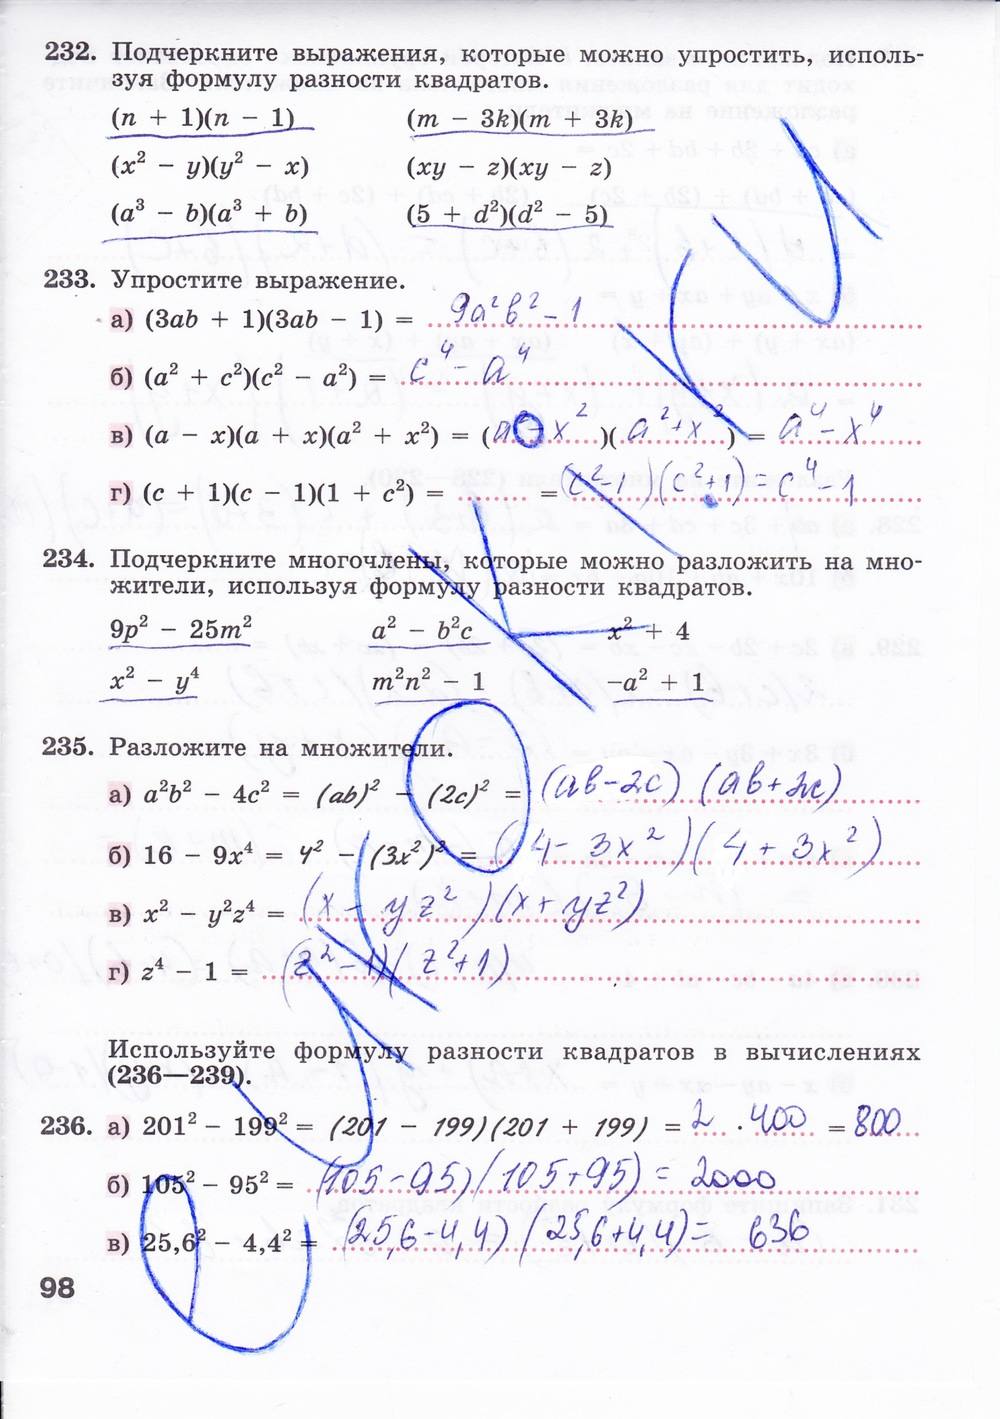 232. Подчеркните выражения, которые можно упростить, исполь-
зуя формулу разности квадратов.
(n + 1)(n − 1) (m − 3k)(m + 3k)
(x² − y)(y² − x) (xy − z)(xy − z)
(a³ − b)(a³ + b) (5 + d²)(d² − 5)
233. Упростите выражение.
а) (3ab + 1)(3ab − 1) = 9a²b² − 1
б) (a² + c²)(c² − a²) = c⁴ − a⁴
в) (a − x)(a + x)(a² + x²) = (a² − x²)(a² + x²) = a⁴ − x⁴
г) (c + 1)(c − 1)(1 + c²) = = (c² − 1)(c² + 1) = c⁴ − 1
234. Подчеркните многочлены, которые можно разложить на мно-
жители, используя формулу разности квадратов.
9p² − 25m² a² − b²c x² + 4
x² − y⁴ m²n² − 1 −a² + 1
235. Разложите на множители.
а) a²b² − 4c² = (ab)² − (2c)² = (ab − 2c) (ab + 2c)
б) 16 − 9x⁴ = 4² − (3x²)² = (4 − 3x²)(4 + 3x²)
в) x² − y²z⁴ = (x − yz²)(x + yz²)
г) z⁴ − 1 = (z² − 1)(z² + 1)
Используйте формулу разности квадратов в вычислениях
(236—239).
236. а) 201² − 199² = (201 − 199)(201 + 199) = 2 · 400 = 800
б) 105² − 95² = (105 − 95)(105 + 95) = 2000
в) 25,6² − 4,4² = (25,6 − 4,4)(25,6 + 4,4) = 636
98